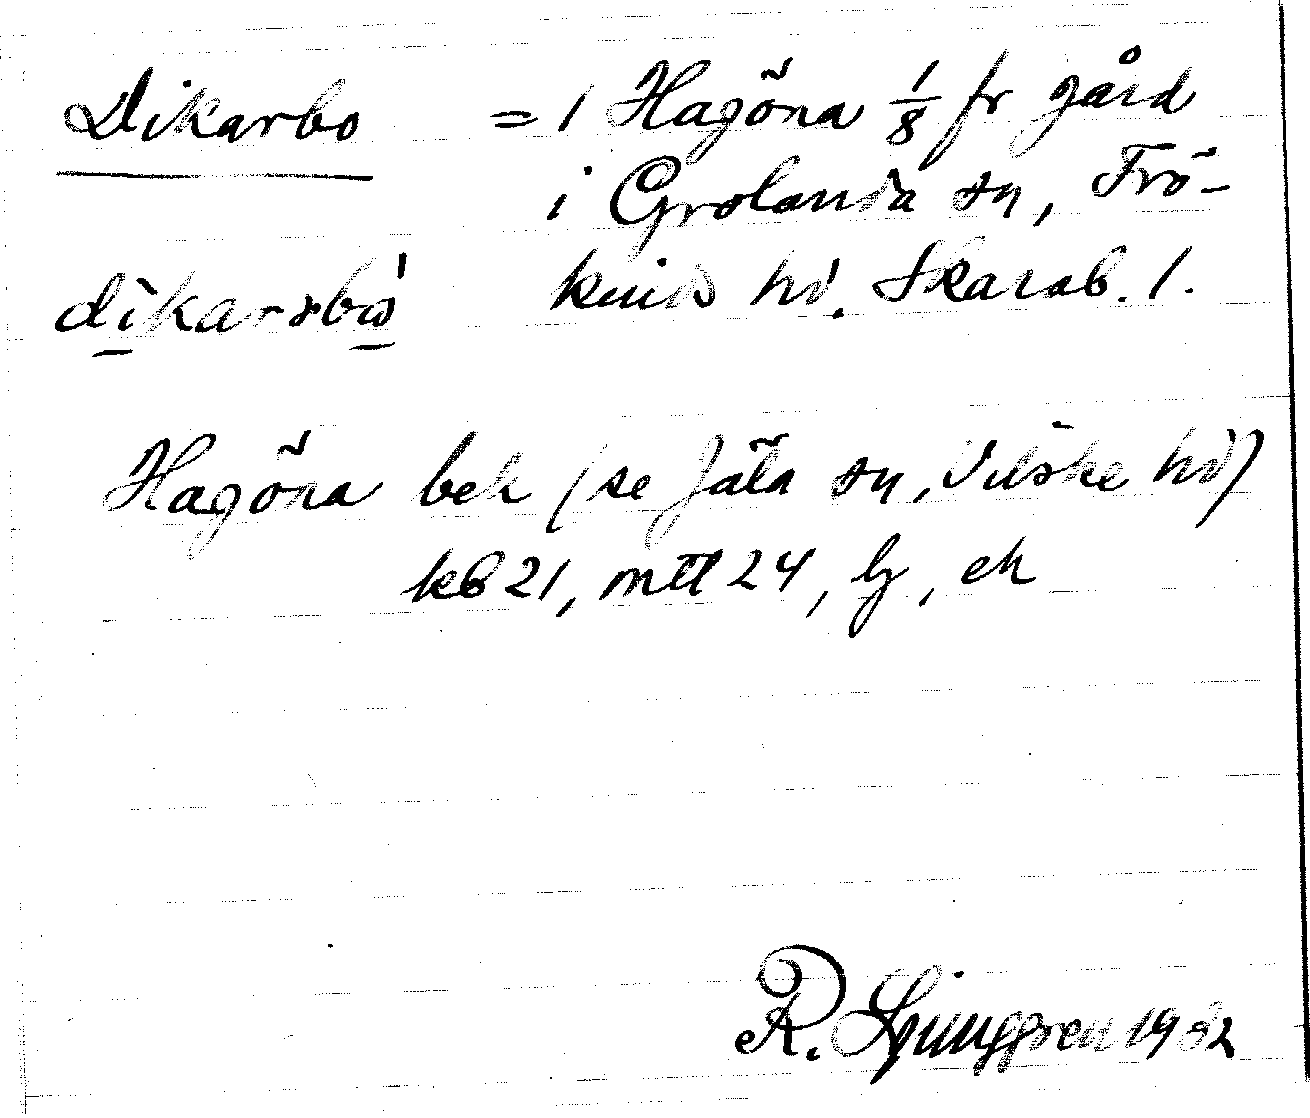 Dikarbo = 1 Hagöna 1/8 fr gård
i Grolanda sn, Frö-
dikarsbo kinds hd. Skarab. l.
Hagöna bek (se Jäla sn, Vilske hd)
kb 21, mtl 24, lj, ek
R. Ljunggren 19